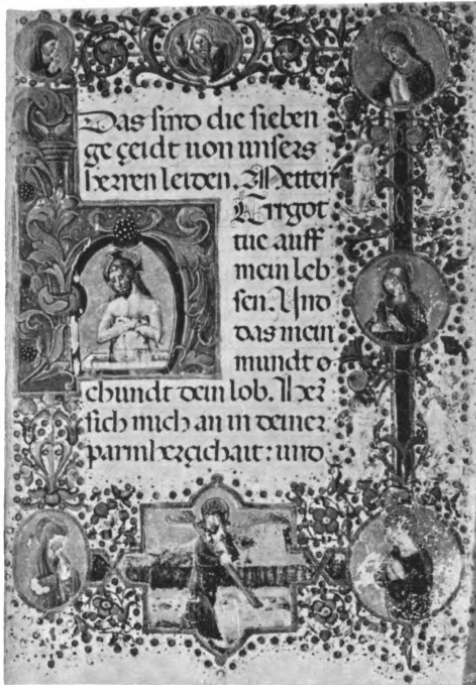 Das sind die sieben
ge çeidt von unsers
herren leiden. Metten
Herr got
tue auff
mein leb
sen. Und
das mein
mundt o
chundt dein lob. Her̃
sich mich an in deiner
parmherçichait: und